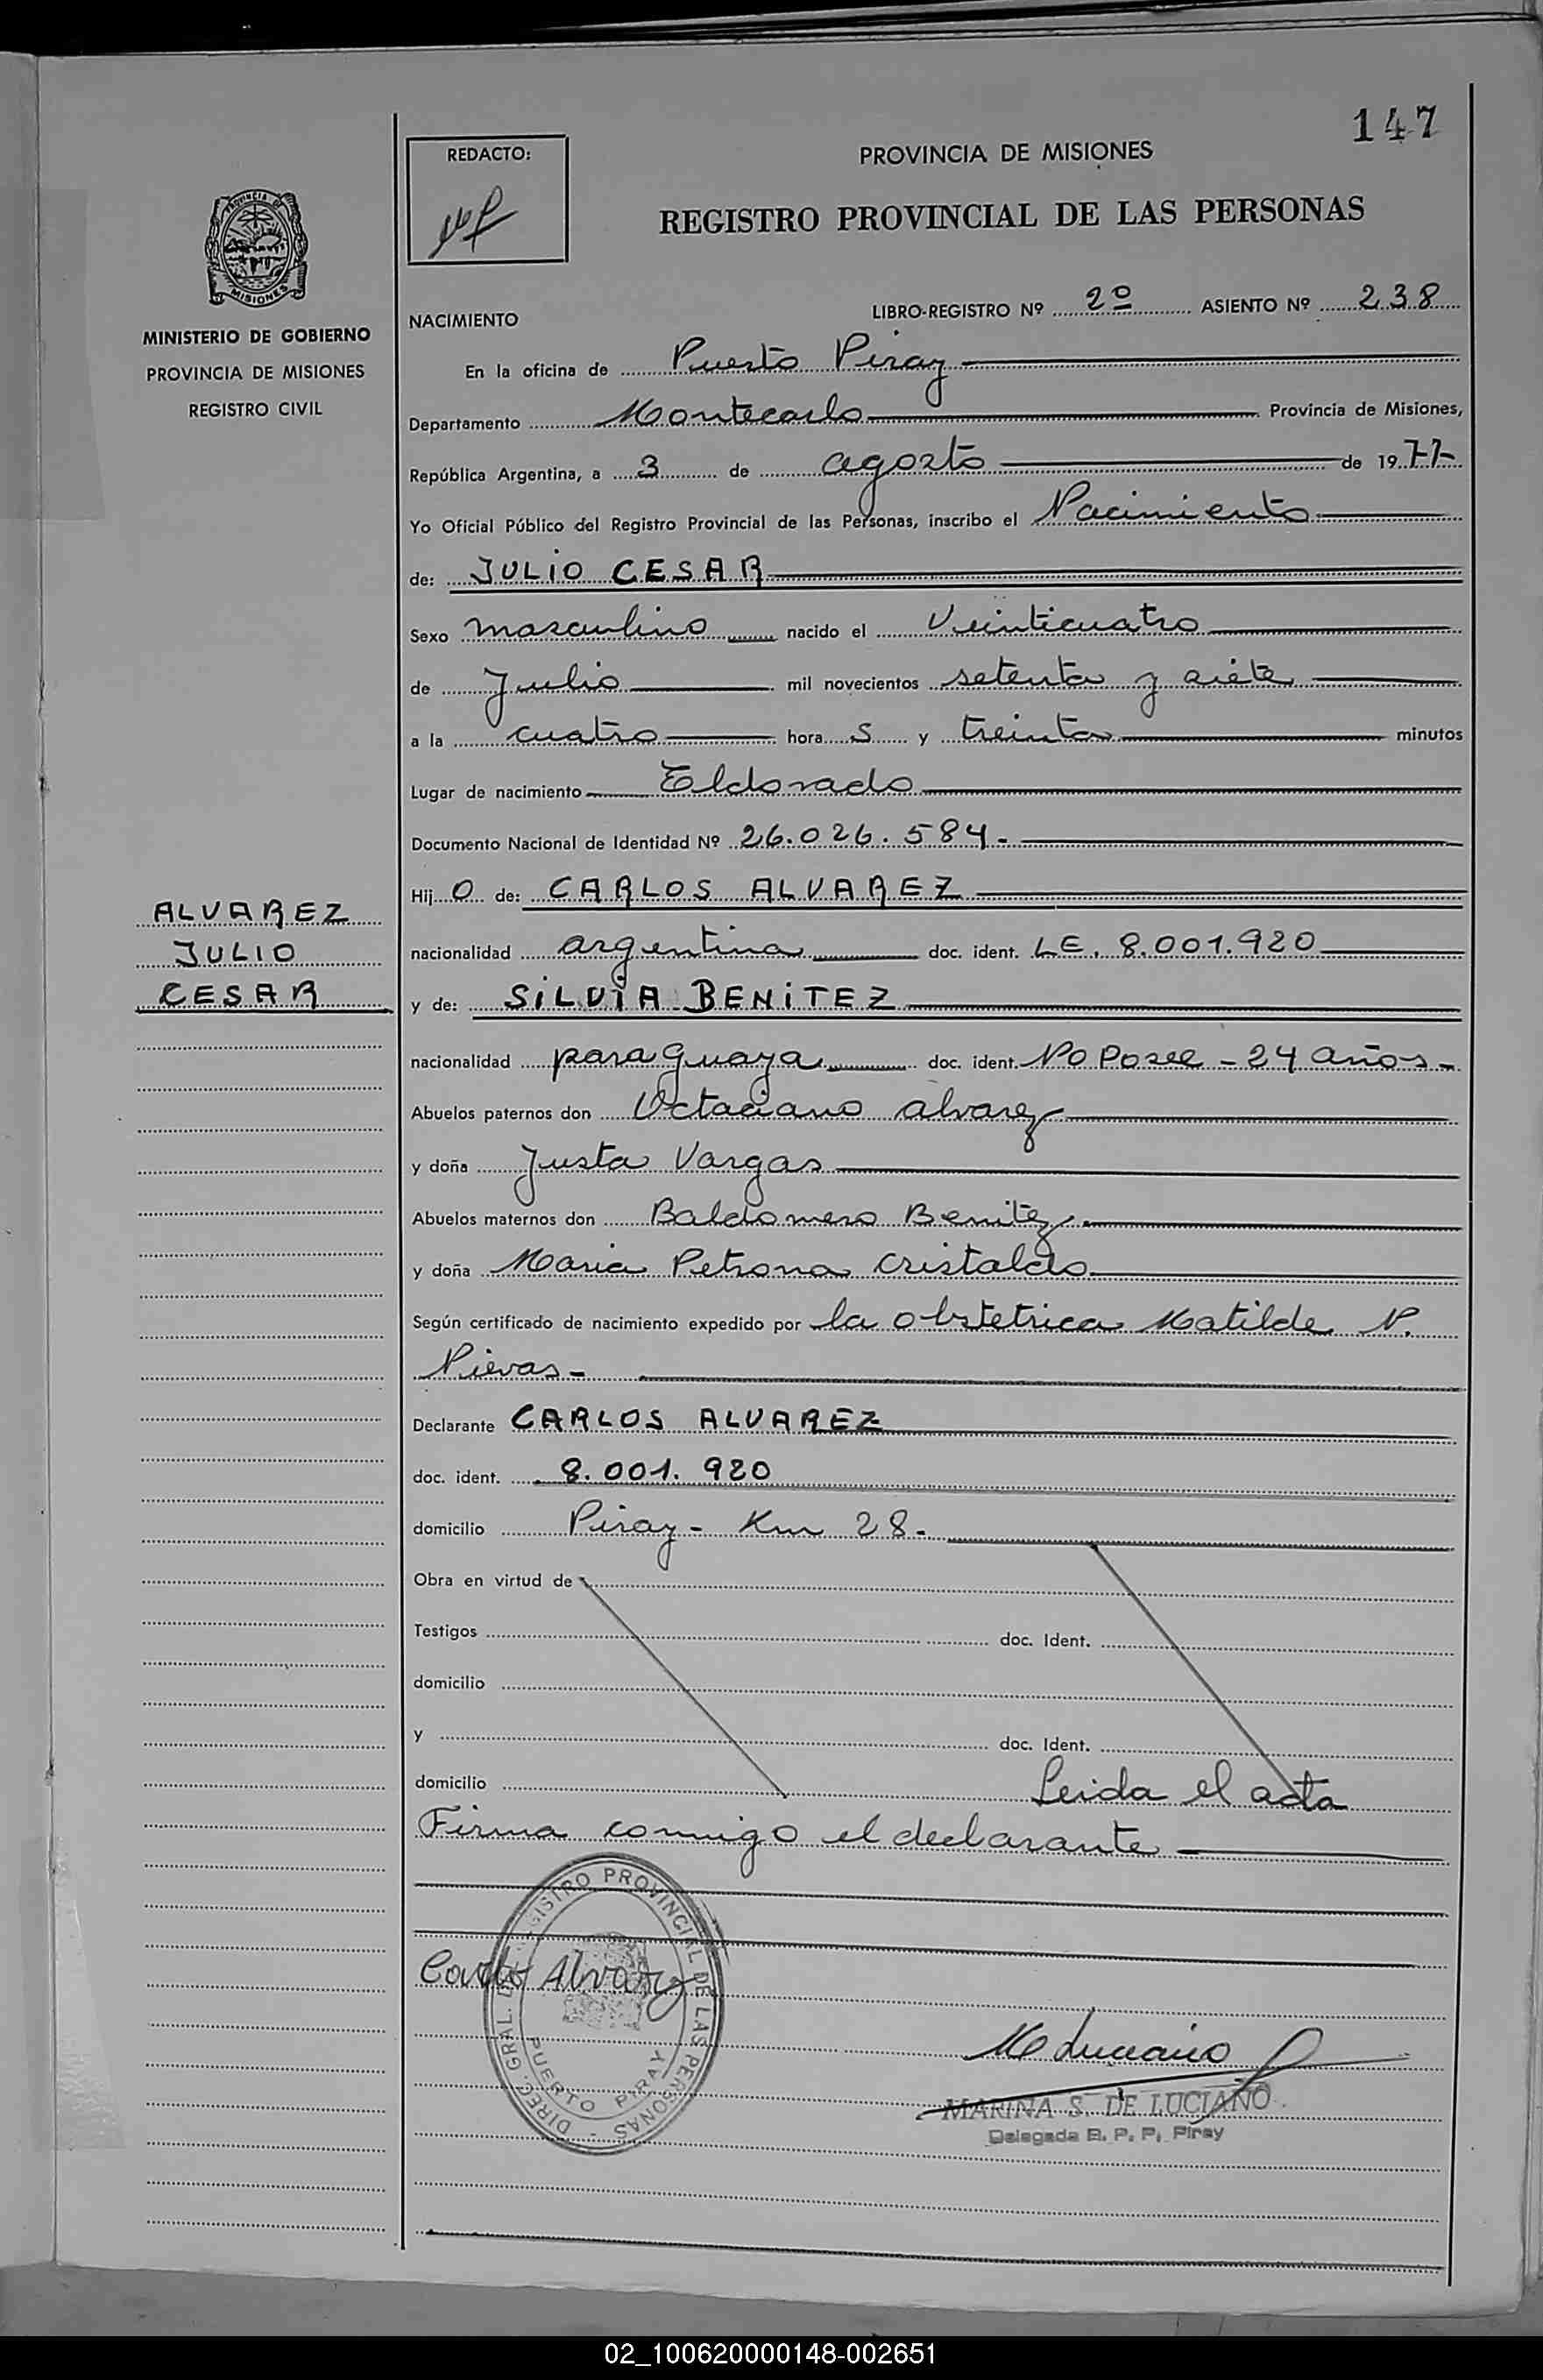 147
REDACTO:
PROVINCIA DE MISIONES
REGISTRO PROVINCIAL DE LAS PERSONAS
PROVINCIA DE
MISIONES
MINISTERIO DE GOBIERNO
PROVINCIA DE MISIONES
REGISTRO CIVIL
NACIMIENTO LIBRO-REGISTRO Nº 2º ASIENTO Nº 238
En la oficina de Puerto Piray
Departamento Montecarlo Provincia de Misiones,
República Argentina, a 3 de agosto de 1977
Yo Oficial Público del Registro Provincial de las Personas, inscribo el Nacimiento
de: JULIO CESAR
Sexo masculino nacido el Veinticuatro
de Julio mil novecientos setenta y siete
a la cuatro hora s y treinta minutos
Lugar de nacimiento Eldorado
Documento Nacional de Identidad Nº 26.026.584.-
Hij o de: CARLOS ALVAREZ
ALVAREZ
JULIO
CESAR
nacionalidad argentina doc. ident. LE. 8.001.920
y de: SILVIA BENITEZ
nacionalidad paraguaya doc. ident. No Posee - 24 años -
Abuelos paternos don Octaciano alvarez
y doña Justa Vargas
Abuelos maternos don Baldomero Benitez
y doña Maria Petrona Cristaldo
Según certificado de nacimiento expedido por la obstetrica Matilde N.
Nievas -
Declarante CARLOS ALVAREZ
doc. ident. 8.001.920
domicilio Piray - Km 28.
Obra en virtud de
Testigos doc. Ident.
domicilio
y doc. Ident.
domicilio Leida el acta
Firma conmigo el declarante
Carlos Alvarez
DIREC. GRAL. DEL REGISTRO PROVINCIAL DE LAS PERSONAS -
PUERTO PIRAY
M Luciano
MARINA S. DE LUCIANO
Delegada R. P. P. Piray
02_100620000148-002651